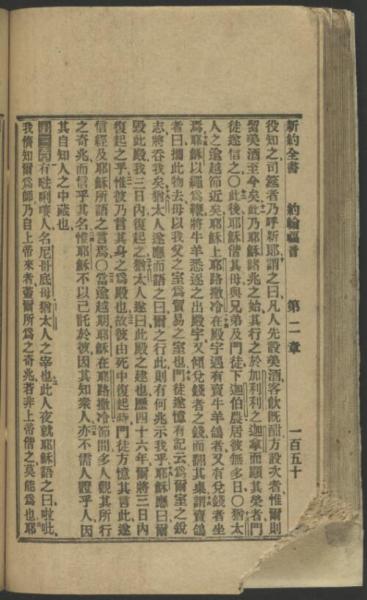 新約全書　約翰福音　第二章　一百五十
役知之司筵者乃呼新郎謂之曰凡人先設美酒客飲旣酣方設次者惟爾則
留美酒至今矣此乃耶穌諸兆之始其行之於加利利之迦拿而顯其榮者門
徒遂信之〇此後耶穌偕其母與兄弟及門徒下迦伯農居彼無多日〇猶太
人之逾越節近矣耶穌上耶路撒冷在殿宇遇有賣牛羊鴿者又有兌錢者坐
焉耶穌以繩爲鞭將牛羊悉逐之出殿宇又傾兌錢者之錢而翻其桌謂賣鴿
者曰攜此物去毋以我父之室爲貿易之室也門徒遂憶有記云爲爾室之銳
志將吞我矣猶太人遂應而語之曰爾之行此則有何兆示我乎耶穌應曰爾
毀此殿我三日內復起之猶太人遂曰此殿之建也歷四十六年爾將三日內
復起之乎惟彼乃言其身之爲殿也故彼由死中復起時門徒方憶其言此遂
信經及耶穌所語之言焉〇當逾越期耶穌在耶路撒冷節間多人觀其所行
之奇兆而信乎其名惟耶穌不以己託於彼因其知衆人亦不需人證乎人因
其自知人之中藏也
第三章 有𠵽唎㘔人名尼哥底母猶太人之宰也此人夜就耶穌語之曰啦吡
我儕知爾爲師乃自上帝來者蓋爾所爲之奇兆若非上帝偕之莫能爲也耶